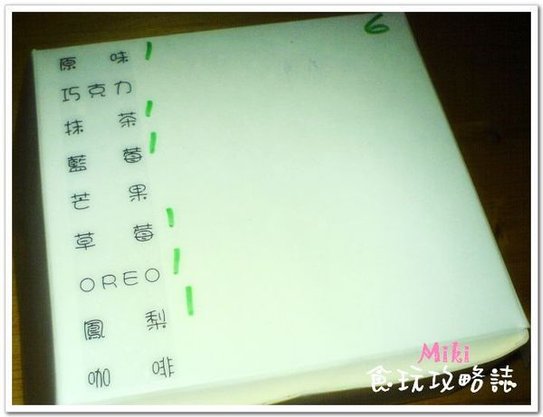 6
原味 /
巧克力
抹茶 /
藍莓 /
芒果
草莓 /
OREO /
鳳梨 /
咖啡
Miki
食玩攻略誌